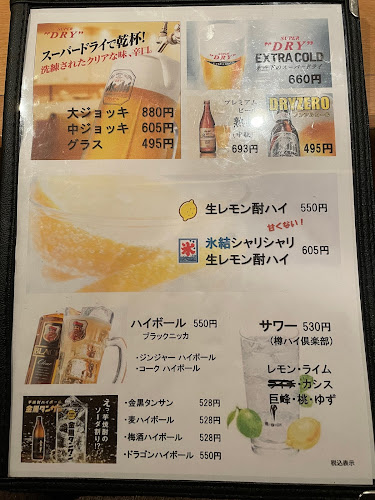 SUPER
"DRY"
スーパードライで乾杯!
洗練されたクリアな味、辛口。
大ジョッキ 880円
中ジョッキ 605円
グラス 495円
SUPER
"DRY"
EXTRA COLD
氷点下のスーパードライ
660円
プレミアム
693円
DRYZERO
495円
生レモン酎ハイ 550円
甘くない!
氷結シャリシャリ
生レモン酎ハイ 605円
ハイボール 550円
ブラックニッカ
・ジンジャー ハイボール
・コーク ハイボール
サワー 530円
(樽ハイ倶楽部)
レモン・ライム
カシス
巨峰・桃・ゆず
芋焼酎ハイボール
金黒タンサン
えっ芋焼酎の
ソーダ割り!?
・金黒タンサン 528円
・麦ハイボール 528円
・梅酒ハイボール 528円
・ドラゴンハイボール 550円
税込表示